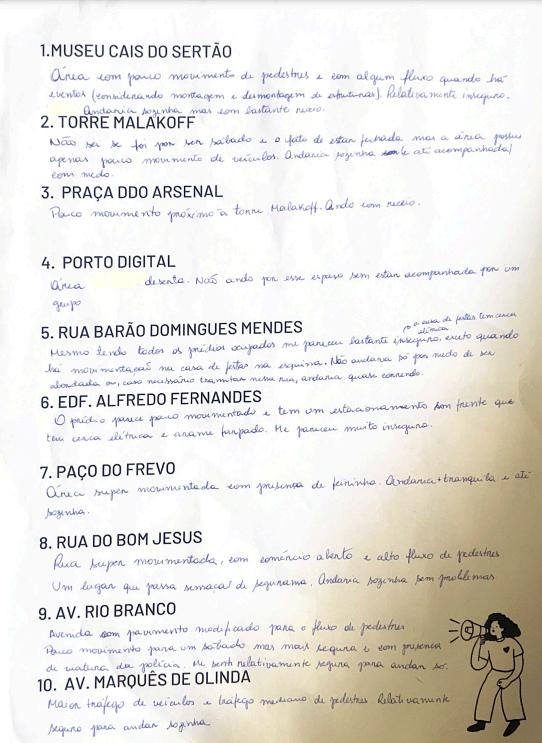 1.MUSEU CAIS DO SERTÃO
Área com pouco movimento de pedestres e com algum fluxo quando há
eventos (considerando montagem e desmontagem de estruturas). Relativamente inseguro.
Andaria sozinha mas com bastante receio.
2. TORRE MALAKOFF
Não sei se foi por ser sábado e o fato de estar fechada mas a área possui
apenas pouco movimento de veículos. Andaria sozinha e até acompanhada
com medo.
3. PRAÇA DDO ARSENAL
Pouco movimento próximo à torre Malakoff. Ando com receio.
4. PORTO DIGITAL
Área deserta. Não ando por esse espaço sem estar acompanhada por um
grupo
5. RUA BARÃO DOMINGUES MENDES
a casa de festas tem cerca
elétrica
Mesmo tendo todos os prédios ocupados me pareceu bastante inseguro, exceto quando
há movimentação na casa de festas na esquina. Não andaria só por medo de ser
abordada ou, caso necessário transitar nessa rua, andaria quase correndo.
6. EDF. ALFREDO FERNANDES
O prédio parece pouco movimentado e tem um estacionamento em frente que
tem cerca elétrica e arame farpado. Me pareceu muito inseguro.
7. PAÇO DO FREVO
Área super movimentada com presença de feirinha. Andaria + tranquila e até
sozinha.
8. RUA DO BOM JESUS
Rua super movimentada, com comércio aberto e alto fluxo de pedestres
Um lugar que passa sensação de segurança. Andaria sozinha sem problemas
9. AV. RIO BRANCO
Avenida com pavimento modificado para o fluxo de pedestres
Pouco movimento para um sábado mas mais segura e com presença
de viatura da polícia. Me senti relativamente segura para andar só.
10. AV. MARQUÊS DE OLINDA
Maior tráfego de veículos e tráfego mediano de pedestres Relativamente
seguro para andar sozinha